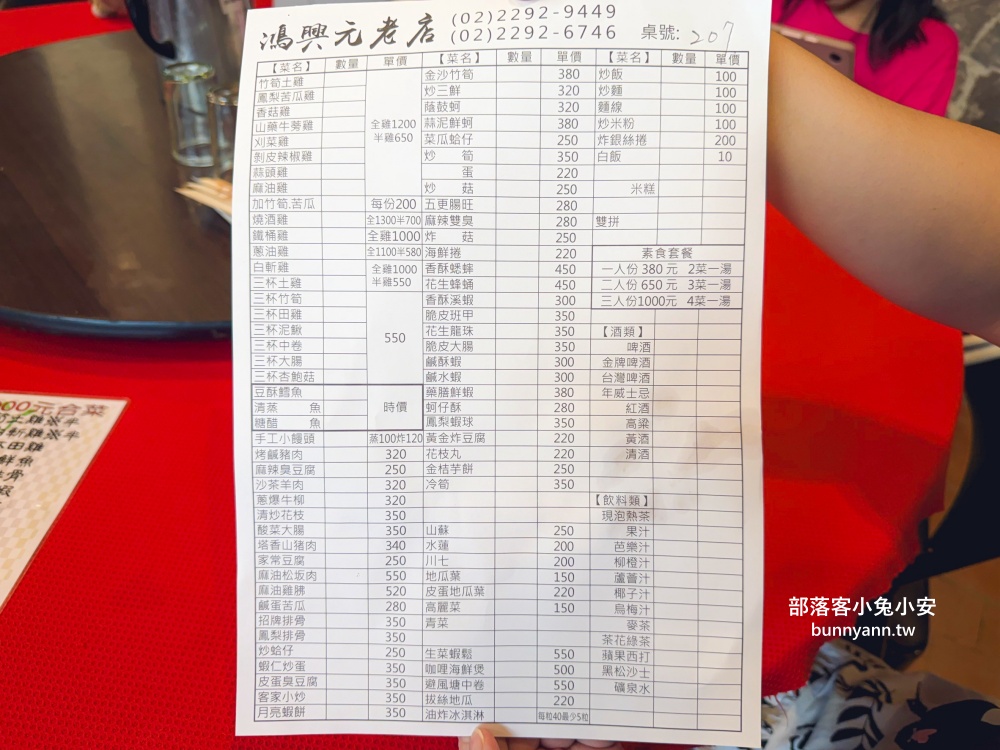 鴻興元老店 (02)2292-9449
(02)2292-6746 桌號: 207
【菜名】 數量 單價
竹筍土雞
鳳梨苦瓜雞
香菇雞
山藥牛蒡雞
刈菜雞
剝皮辣椒雞
蒜頭雞
麻油雞
全雞1200
半雞650
加竹筍.苦瓜 每份200
燒酒雞 全1300半700
鐵桶雞 全雞1000
蔥油雞 全1100半580
白斬雞
三杯土雞
全雞1000
半雞550
三杯竹筍
三杯田雞
三杯泥鰍
三杯中卷
三杯大腸
三杯杏鮑菇
550
豆酥鱈魚
清蒸 魚
糖醋 魚
時價
手工小饅頭 蒸100炸120
烤鹹豬肉 320
麻辣臭豆腐 250
沙茶羊肉 320
蔥爆牛柳 320
清炒花枝 350
酸菜大腸 350
塔香山猪肉 340
家常豆腐 250
麻油松坂肉 550
麻油雞胇 520
鹹蛋苦瓜 280
招牌排骨 350
鳳梨排骨 350
炒蛤仔 250
蝦仁炒蛋 350
皮蛋臭豆腐 350
客家小炒 350
月亮蝦餅 350
【菜名】 數量 單價
金沙竹筍 380
炒三鮮 320
蔭鼓蚵 320
蒜泥鮮蚵 380
菜瓜蛤仔 250
炒 筍 350
蛋 220
炒 菇 250
五更腸旺 280
麻辣雙臭 280
炸 菇 250
海鮮捲 220
香酥蟋蟀 450
花生蜂蛹 450
香酥溪蝦 300
脆皮班甲 350
花生龍珠 350
脆皮大腸 350
鹹酥蝦 300
鹹水蝦 300
藥膳鮮蝦 380
蚵仔酥 280
鳳梨蝦球 350
黃金炸豆腐 220
花枝丸 220
金桔芋餅 250
冷筍 350
山蘇 250
水蓮 200
川七 200
地瓜葉 150
皮蛋地瓜葉 220
高麗菜 150
青菜
生菜蝦鬆 550
咖哩海鮮煲 500
避風塘中卷 550
拔絲地瓜 220
油炸冰淇淋 每粒40最少5粒
【菜名】 數量 單價
炒飯 100
炒麵 100
麵線 100
炒米粉 100
炸銀絲捲 200
白飯 10
米糕
雙拼
素食套餐
一人份 380 元 2菜一湯
二人份 650 元 3菜一湯
三人份1000元 4菜一湯
【酒類】
啤酒
金牌啤酒
台灣啤酒
年威士忌
紅酒
高梁
黃酒
清酒
【飲料類】
現泡熱茶
果汁
芭樂汁
柳橙汁
蘆薈汁
椰子汁
烏梅汁
麥茶
茶花綠茶
蘋果西打
黑松沙士
礦泉水
00元合菜
部落客小兔小安
bunnyann.tw